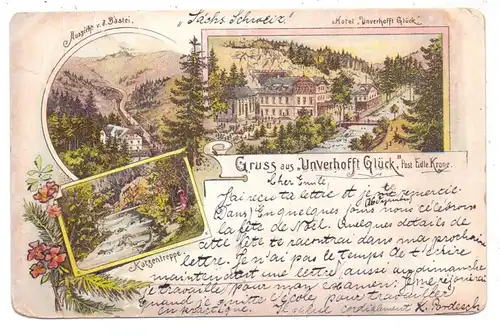 Aussicht v. d. Bastei.
"Sächs Schweiz"
Hotel "Unverhofft Glück".
Gruss aus "Unverhofft Glück," Post Edle Krone.
Katzentreppe.
Cher Emile,
J'ai reçu ta lettre et je te remercie
Dans quelques jours nous célébrons
la fête de Noël. Quelques détails de
cette fête te racontrai dans ma prochain
lettre. Je n'ai pas le temps de t'écrire
maintenant une lettre, aussi au dimanche
je travaille pour mon examen. Je me réjouirai
quand je quitte l'école pour travailler
en pratique. Il salue cordialement K.